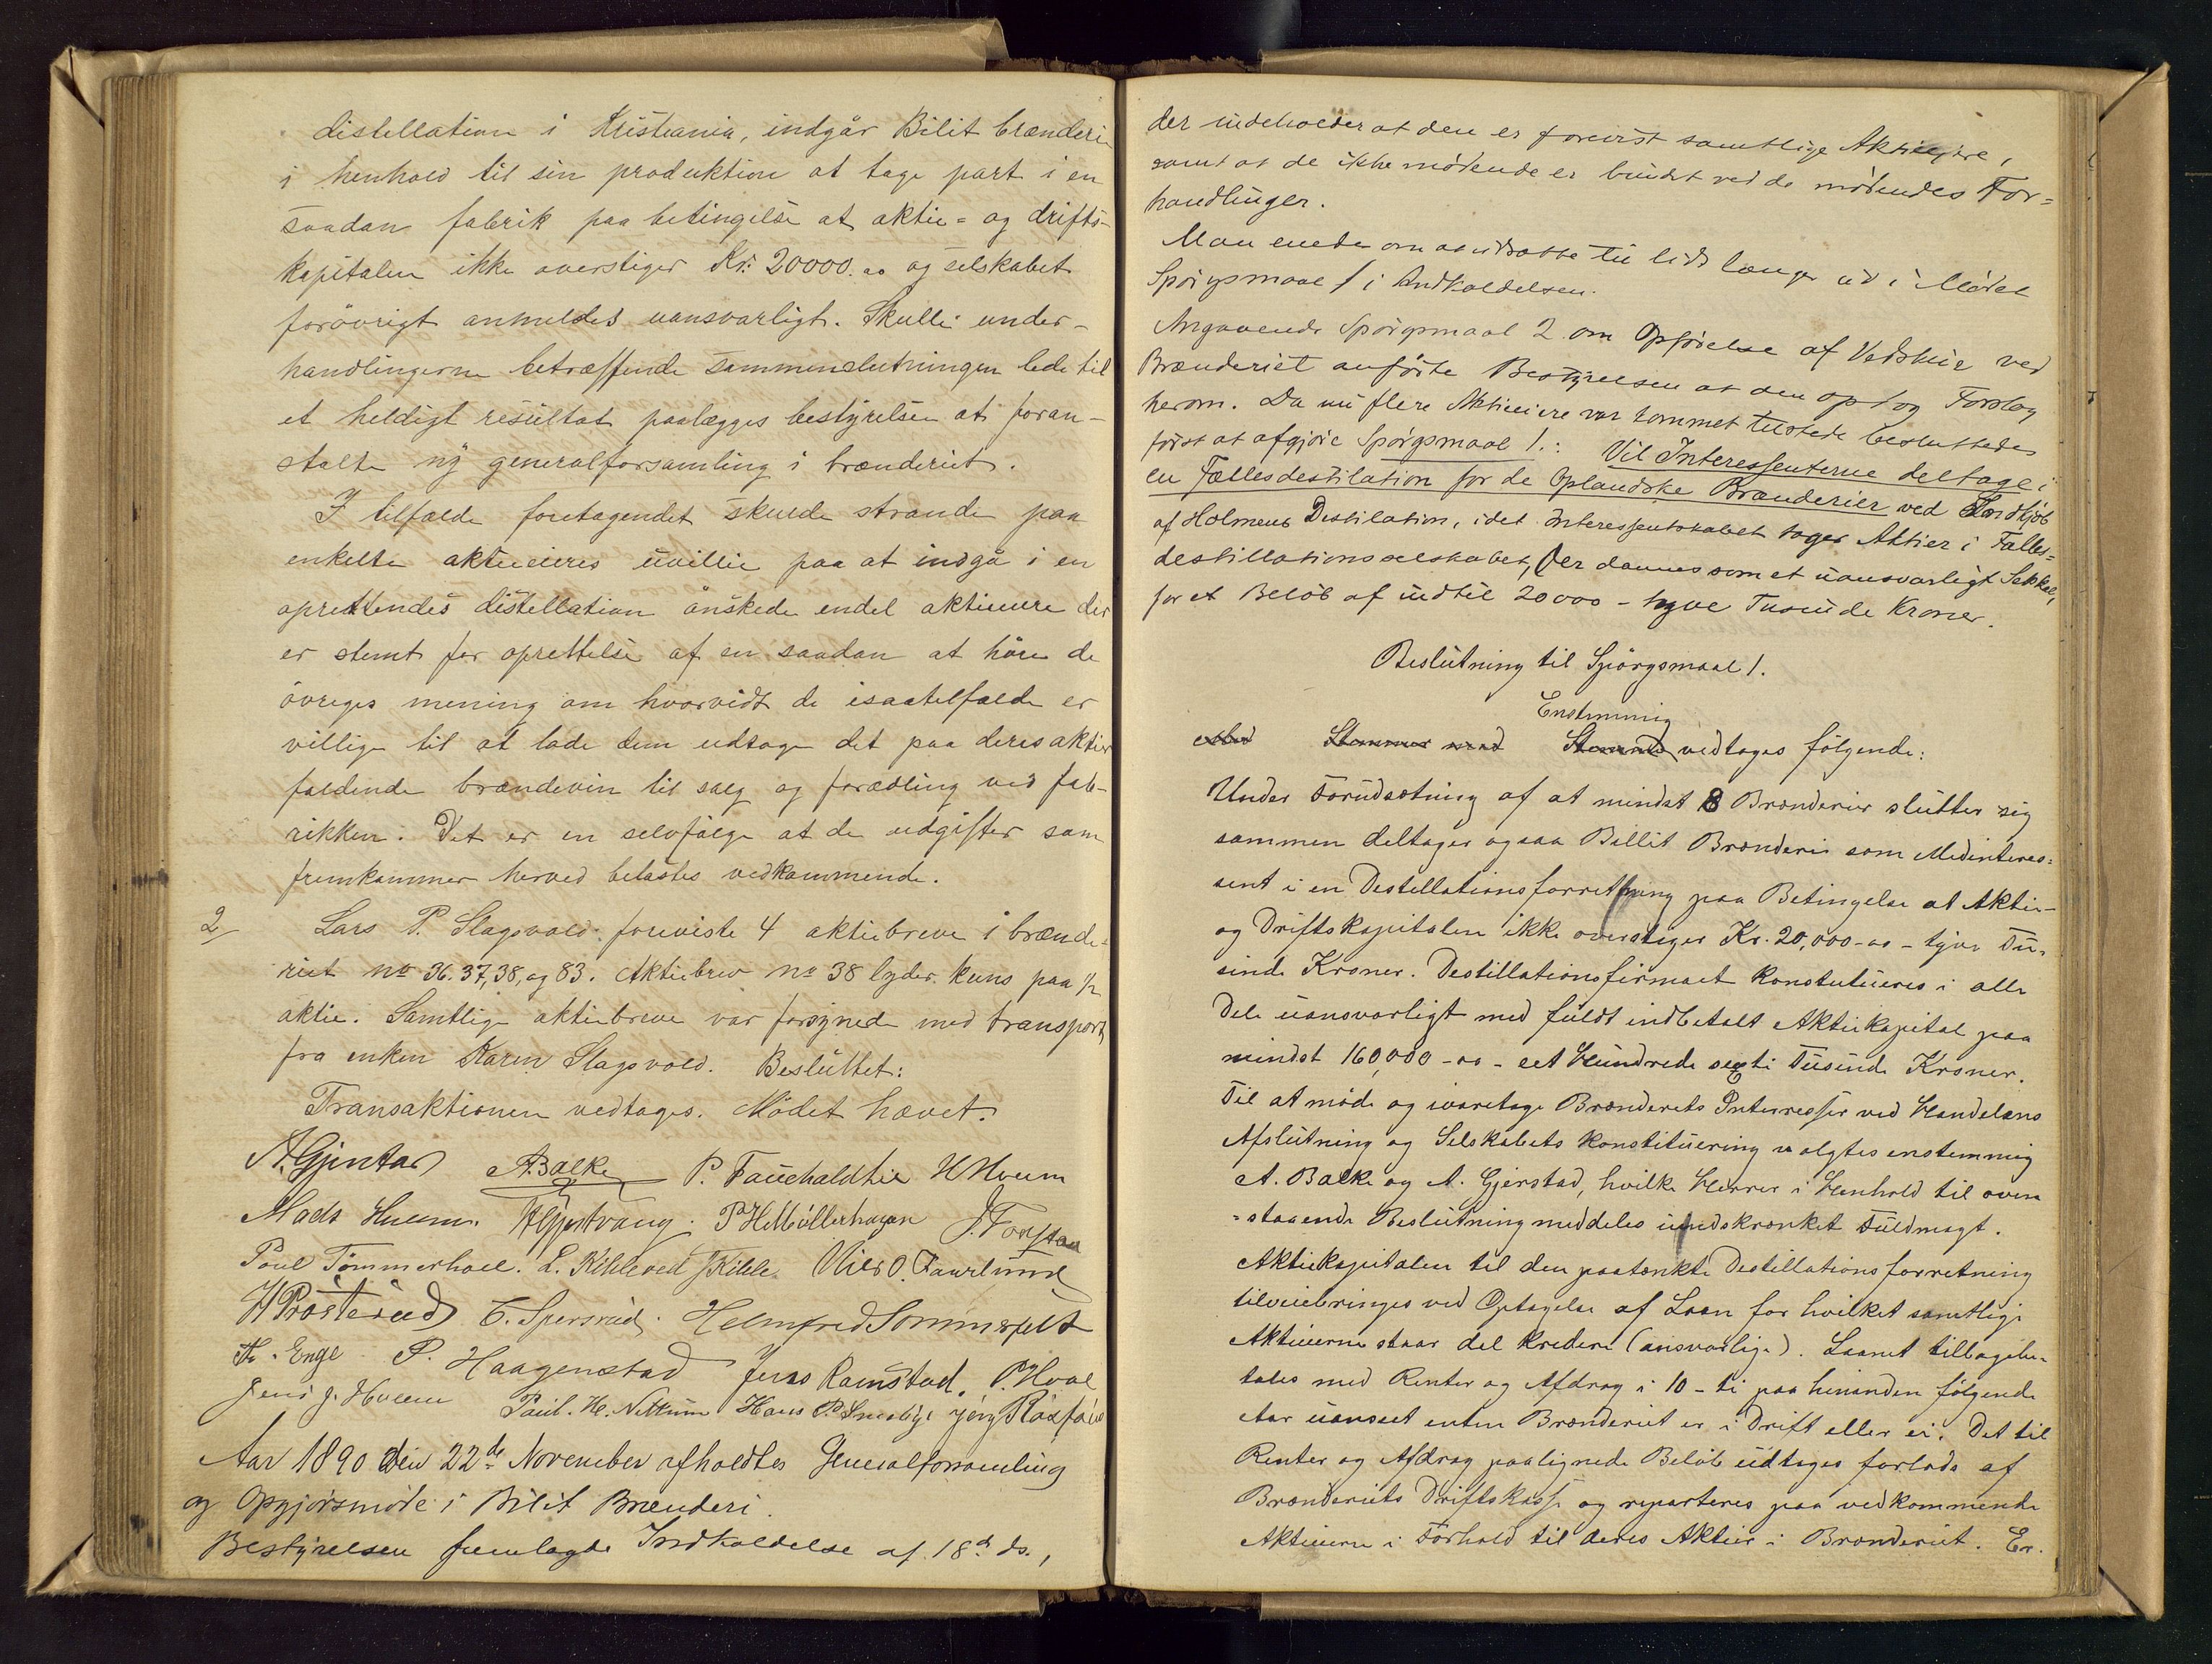 distellation i Kristiania, indgår Bilit brænderi
i henhold til sin produktion at tage part i en
saadan fabrik paa betingelse at aktie= og drifts-
kapitalen ikke overstiger Kr: 20000.oo og selskabet
forövrigt anmeldes uansvarligt. Skulle under-
handlingerne betræffende sammenslutningen lede til
et heldigt resultat paalægges bestyrelsen at foran-
stalte ny generalforsamling i brænderiet.
I tilfælde foretagendet skulde strande paa
enkelte aktieeieres uvillie paa at indgå i en
oprettendes distellation önskede endel aktieeiere der
er stemt for oprettelse af en saadan at höre de
övriges mening om hvorvidt de isaatilfælde er
villige til at lade dem udtage det paa deres aktier
faldende brændevin til salg og forædling ved fab-
rikken. Det er en selvfölge at de udgifter som
fremkommer herved belastes vedkommende.
2/ Lars P. Slagsvold foreviste 4 aktiebreve i brænde-
riet no 36. 37, 38, og 83. Aktiebrev no 38 lyder kuns paa 1/2
aktie. Samtlige aktiebreve var forsynede med transport
fra enken Karen Slagsvold. Besluttet:
Transaktionen vedtages. Mödet hævet.
A. Balke P. Fauchaldlie H Hveem
Mads Hveem. P H Möllerhagen
Poul Tömmerhoel. L. Kihle ved Kihle. Nils O.
H Prösterud C. Spersrud. Helmfred Sommerfelt
Enge P. Haagenstad Jens Ramstad. P. Hoel
Jens J. Hveem Paul. H. Nettum Hans P.
Aar 1890 den 22de November afholdtes Generalforsamling
og Opgjörsmöte i Bilit Brænderi.
Bestyrelsen fremlagde Indkaldelse af 18d ds.,
der indeholder at den er forevist samtlige Aktieeiere,
samt at de ikke mödende er bundet ved de mödendes For=
handlinger.
Man enedes om at udsætte til lidt længer ud i Mödet
Spörgsmaal 1 i Indkaldelsen.
Angaaende Spörgsmaal 2 om Opförelse af Vedskur ved
Brænderiet anförte Bestyrelsen at den optog Forslag
herom. Da nu flere Aktieeiere var kommet tilstede besluttedes
först at afgjöre Spörgsmaal 1.: Vil Interessenterne deltage i
en Fællesdestilation for de Oplandske Brænderier ved Indkjöb
af Holmens Destilation, idet Interessentskabet tager Aktier i Fælles=
destillationsselskabet, der dannes som et uansvarligt Selskab,
for et Belöb af indtil 20000 - tyve Tusinde Kroner.
Beslutning til Spörgsmaal 1.
Enstemmig
Stemmer mod vedtages fölgende:
Under Forudsætning af at mindst 8 Brænderier slutter sig
sammen deltager ogsaa Billit Brænderi som Medinteres=
sent i en Destillationsforretning paa Betingelse at Aktie-
og Driftskapitalen ikke overstiger Kr. 20,000-oo - tyve Tu-
sinde Kroner. Destillationsfirmaet konstitueres i alle
Dele uansvarligt med fuldt indbetalt Aktiekapital paa
mindst 160,000-oo - eet Hundrede sexti Tusinde Kroner.
Til at möde og ivaretage Brænderiets Interesser ved Handelens
Afslutning og Selskabets konstituering valgtes enstemmig
A. Balke og A. Gjerstad, hvilke Herrer i Henhold til oven
=staaende Beslutning meddeles uindskrænket Fuldmagt.
Aktiekapitalen til den paatænkte Destillationsforretning
tilveiebringes ved Optagelse af Laan for hvilket samtlige
Aktieeierne staar del kredere (ansvarlige). Laanet tilbagebe-
tales med Renter og Afdrag i 10 - ti paa hinanden fölgende
Aar uanseet enten Brænderiet er i Drift eller ei. Det til
Renter og Afdrag paalignede Belöb udtages forlods af
Brænderiets Driftskasse og reparteres paa vedkommende
Aktieeiere i Forhold til deres Aktier i Brænderiet. Er.